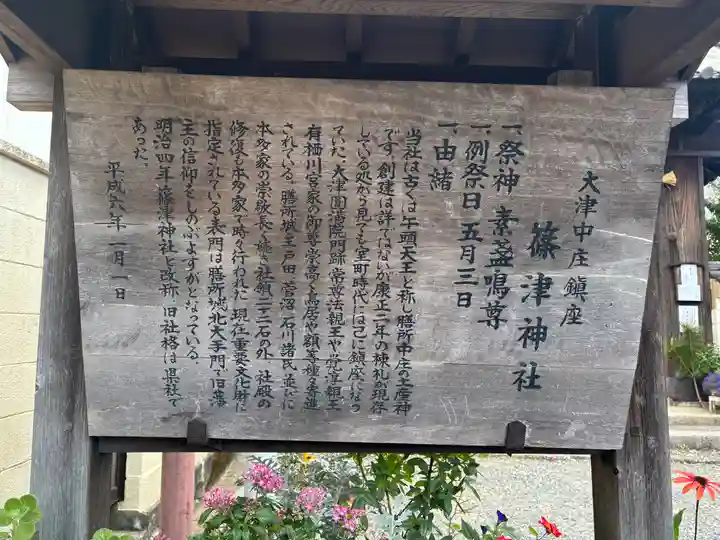 大津中庄鎮座
篠津神社
一、祭神 素盞鳴尊
一、例祭日 五月三日
一、由緒
当社は古くは牛頭天王と称し膳所中庄の土産神
です。創建は詳ではないが康正二年の棟札が現存
している処から見ても室町時代には已に鎮座になっ
ていた。大津圓満院門跡常尊法親王や覚淳親王
有栖川宮家の御尊崇高く鳥居や額等種々寄進
されている。膳所城主戸田 菅沼 石川諸氏並びに
本多家の崇敬長く続き社領二十二石の外 社殿の
修復も本多家で時々行われた 現在重要文化財に
指定されている表門は膳所城北大手門で旧藩
主の信仰をしのぶよすがとなっている。
明治四年 篠津神社と改称 旧社格は県社で
あった。
平成六年 一月一日